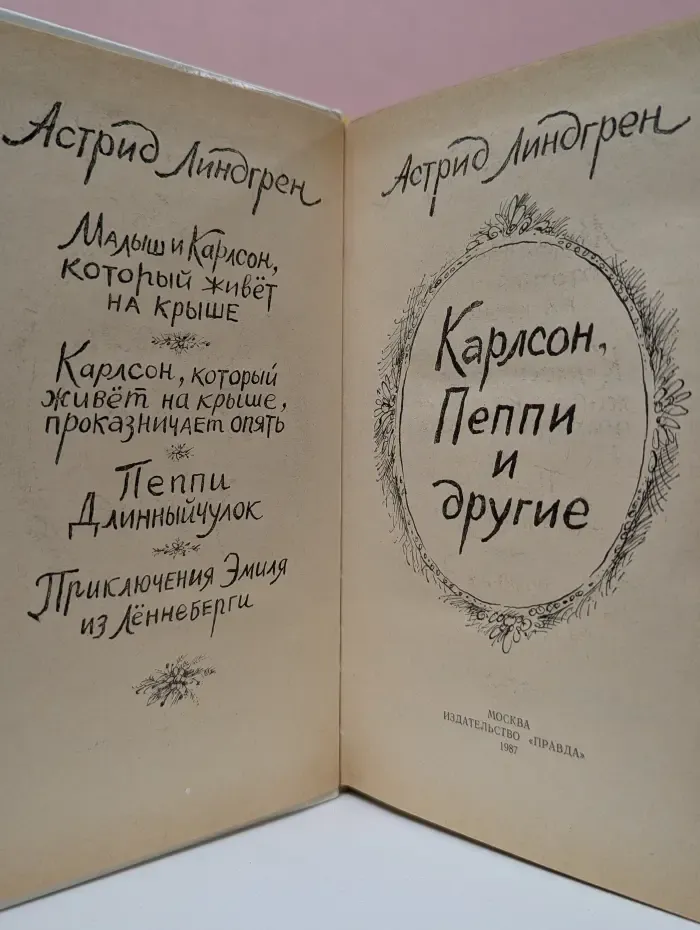 Астрид Линдгрен
Малыш и Карлсон,
который живёт
на крыше
Карлсон, который
живёт на крыше,
проказничает опять
Пеппи
Длинныйчулок
Приключения Эмиля
из Лённеберги
Астрид Линдгрен
Карлсон,
Пеппи
и
другие
МОСКВА
ИЗДАТЕЛЬСТВО «ПРАВДА»
1987